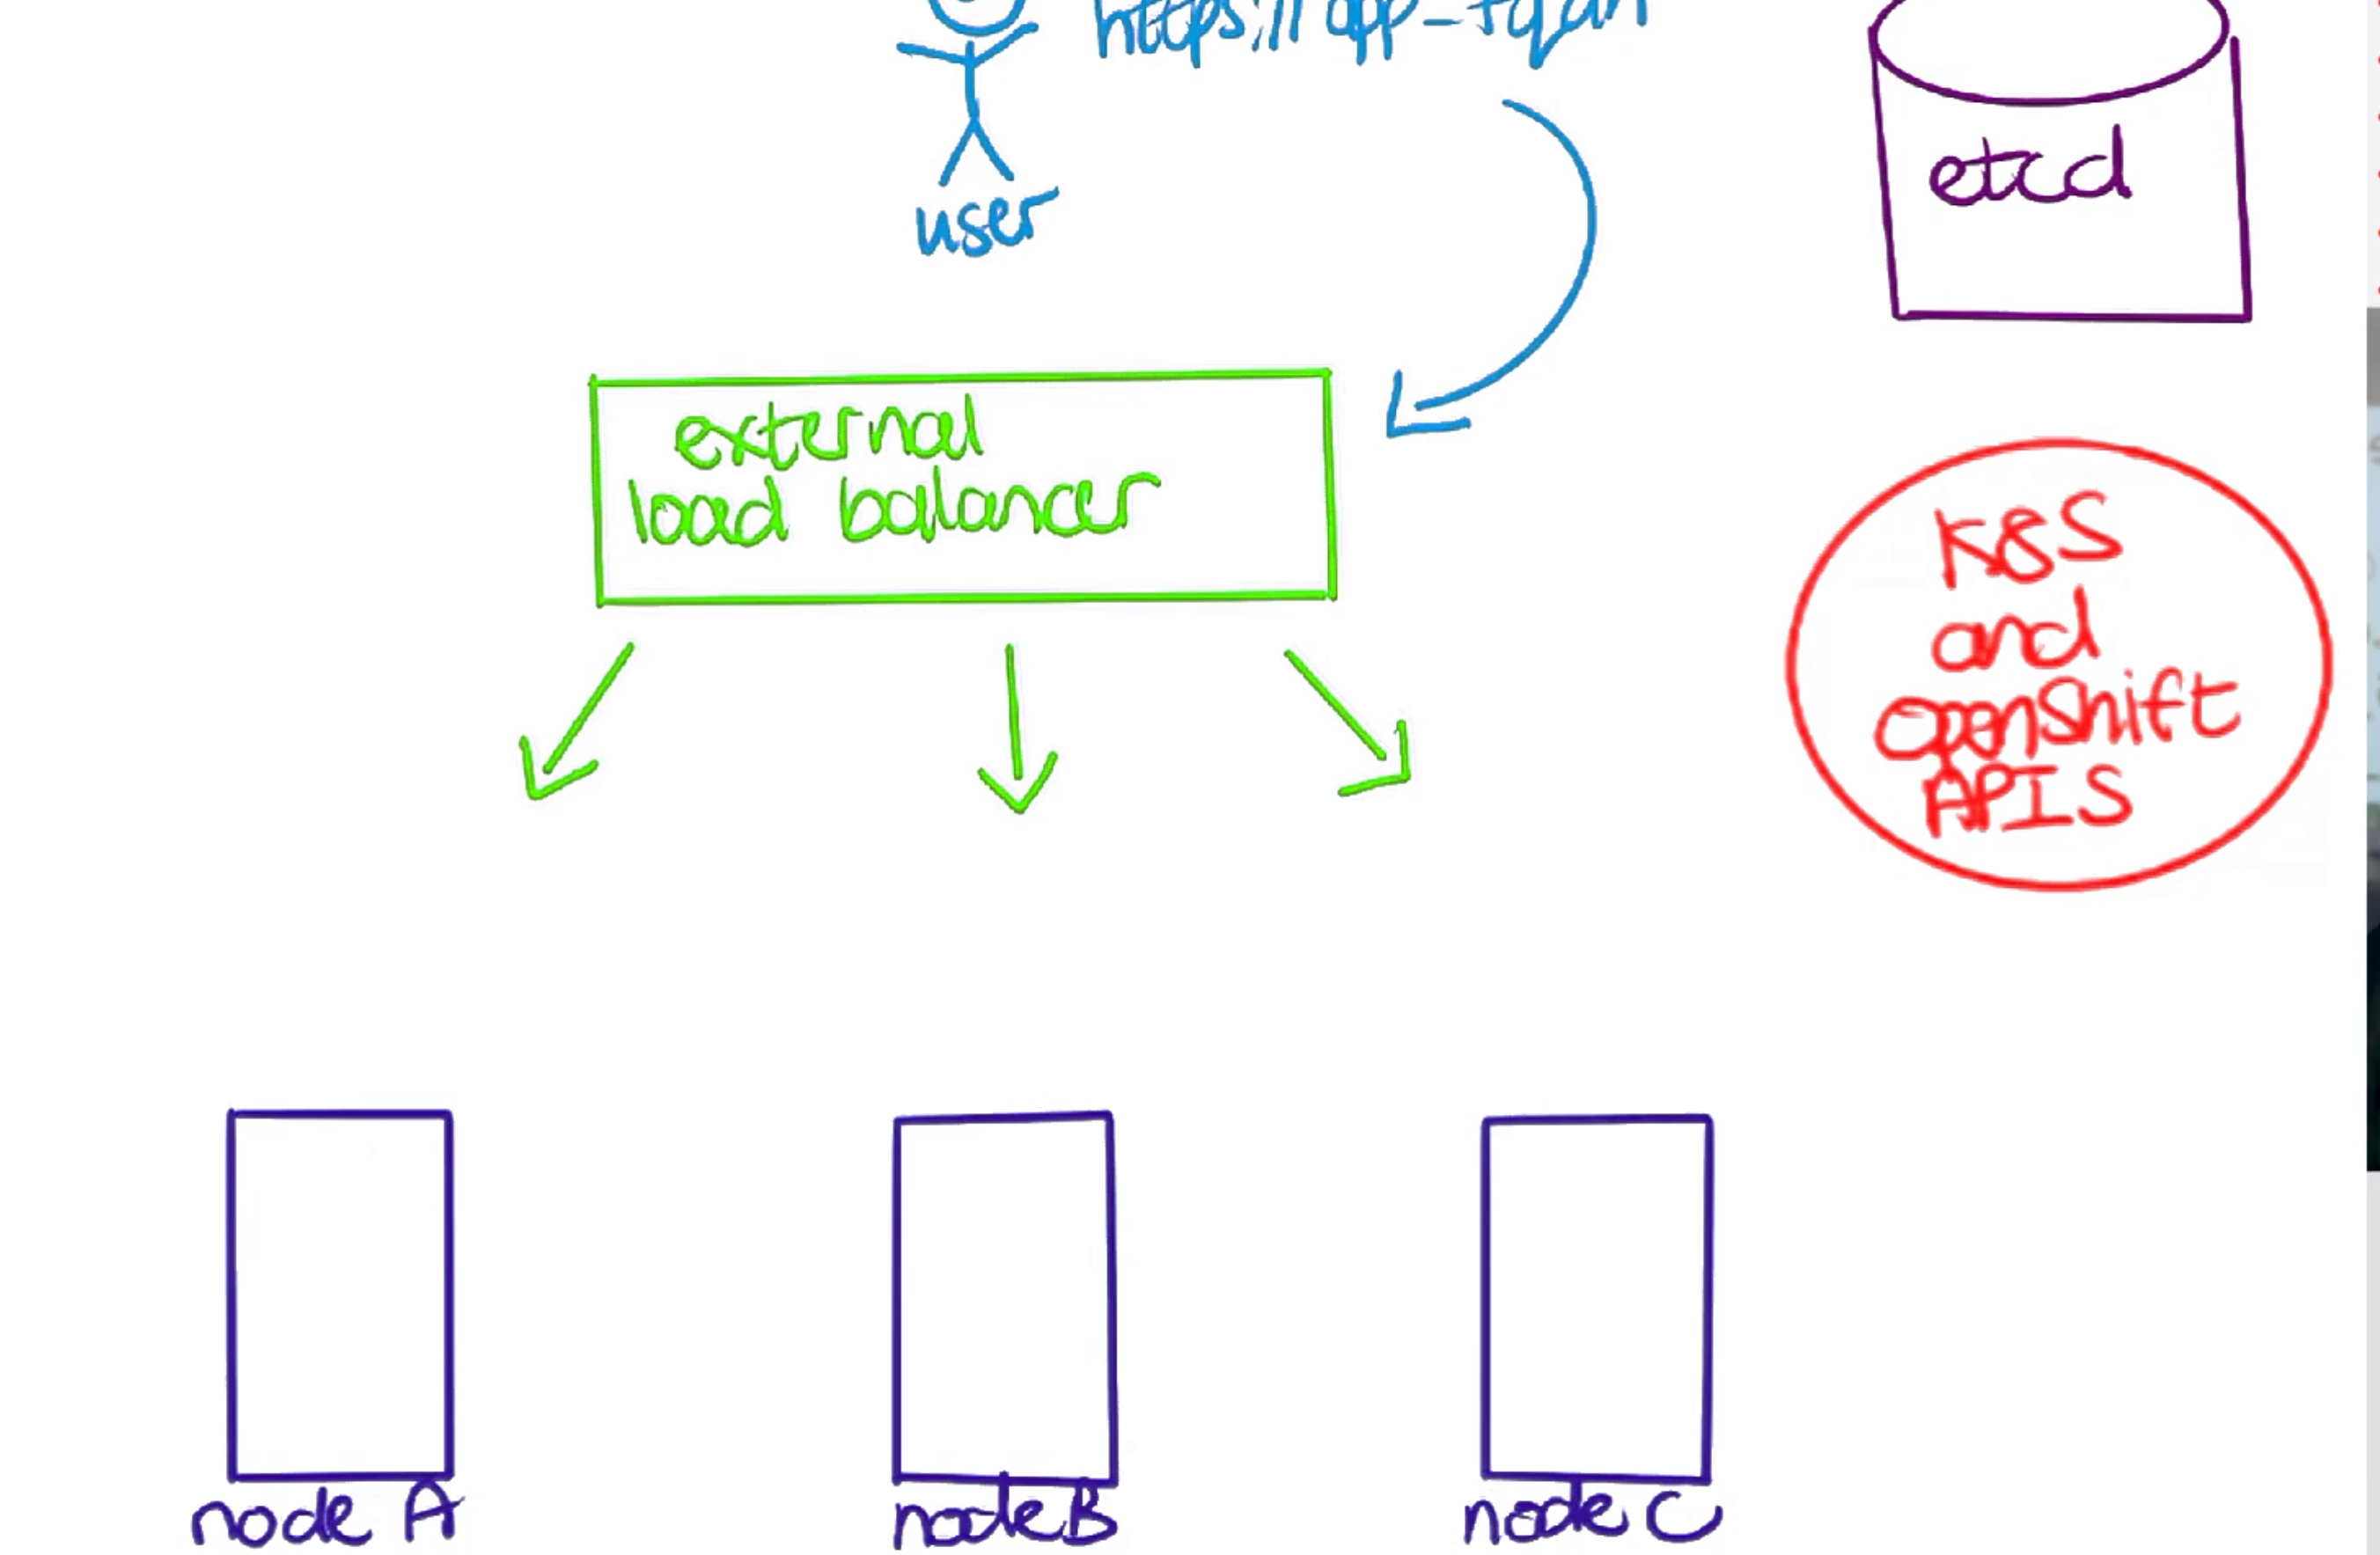 https://app-fqdn
user
etcd
external
load balancer
K8S
and
openshift
APIS
node A
node B
node C